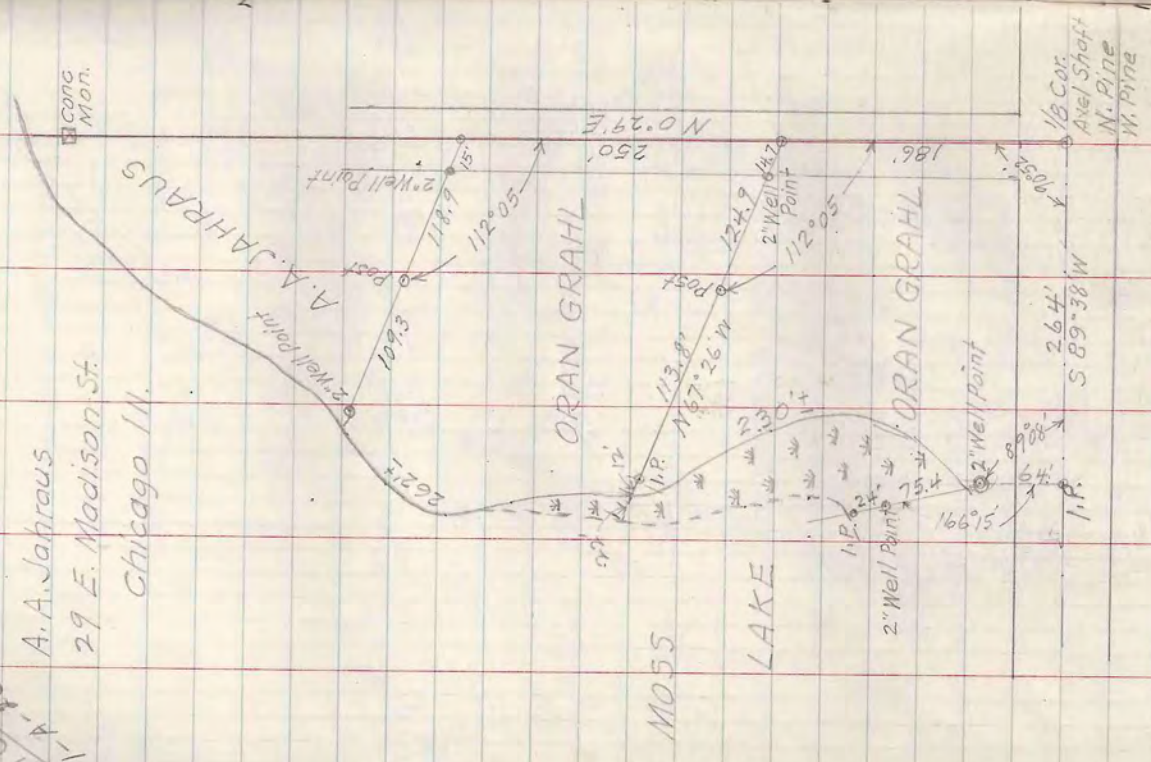 A. A. Jahraus
29 E. Madison St.
Chicago Ill.
Conc.
Mon.
A. A. JAHRAUS
2" Well Point
15'
118.9
112°05'
Post
109.3
2" Well Point
262'±
N 0°29' E
250'
ORAN GRAHL
64.7
2" Well
Point
124.9
112°05'
Post
113.8'
N 67° 26' W
12'
I.P.
22'
230'±
186'
ORAN GRAHL
MOSS
LAKE
I.P.
24'
2" Well Point
75.4
2" Well Point
89°08'
64'
I.P.
90°52'
264'
S 89°38' W
1/8 Cor.
Axel Shaft
N. Pine
W. Pine